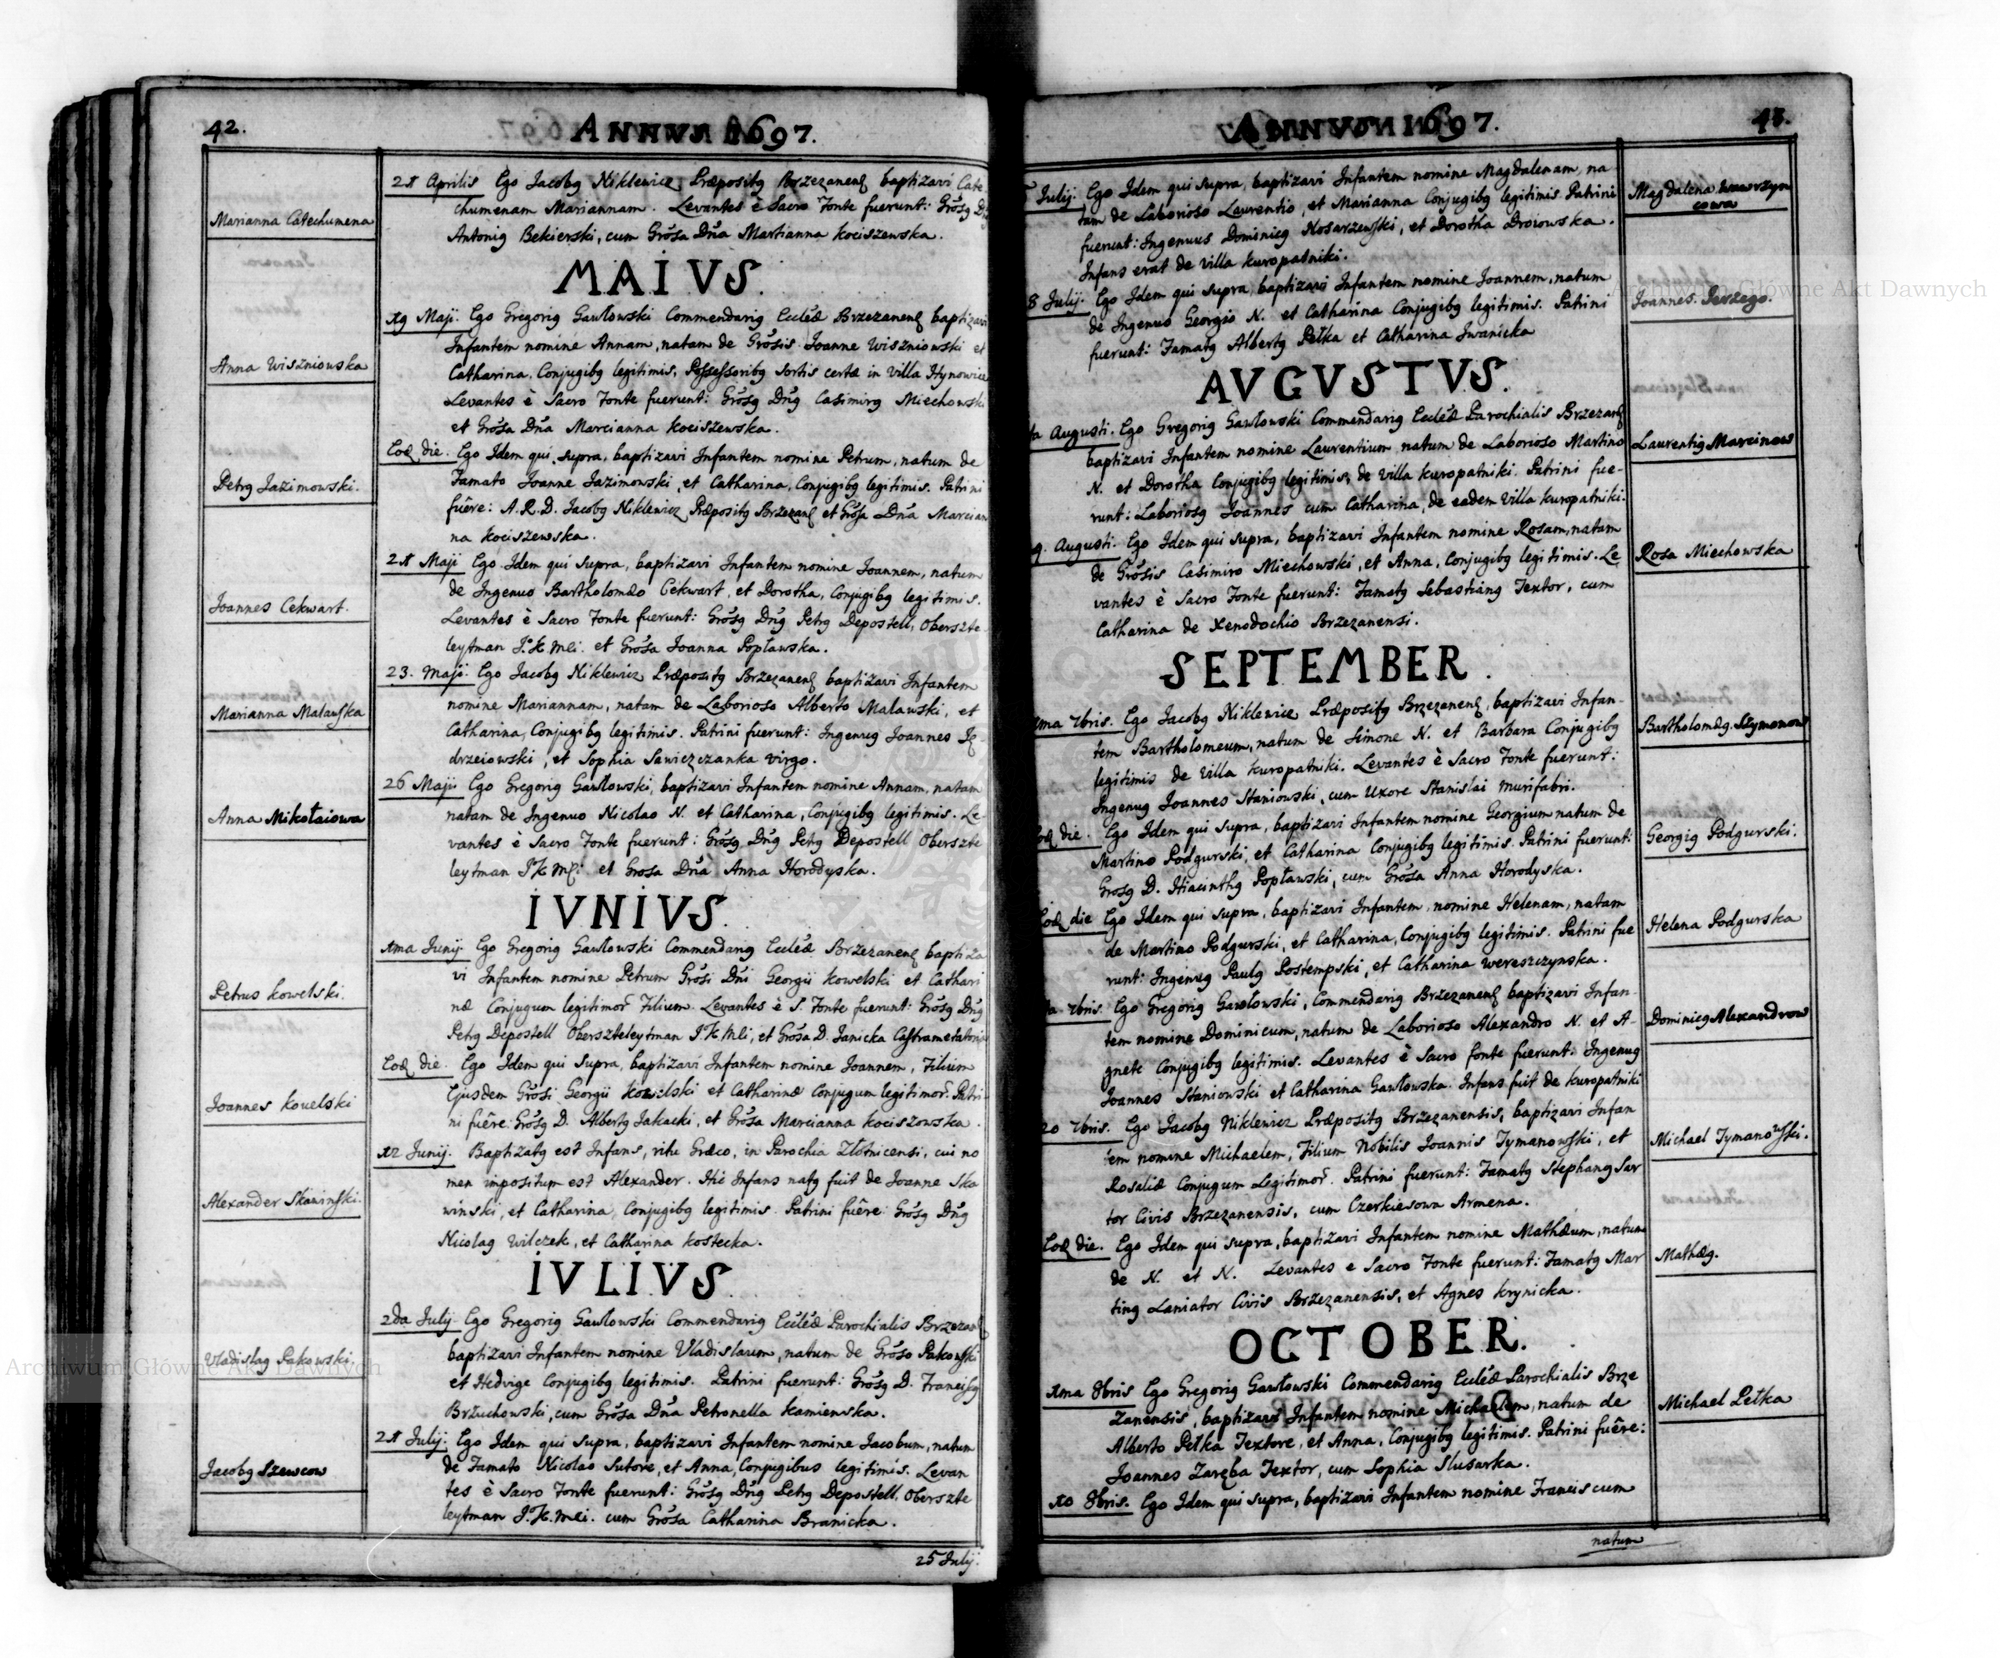 42.
ANNUS 1697.
Marianna Catechumena
21 Aprilis Ego Jacobg Niklewicz Præpositg Brzezanens baptizavi Cate
chumenam Mariannam. Levantes è Sacro Fonte fuerunt: Grosg
Antonig Bekierski, cum Grosa Dna Martianna Kociszewska.
MAIVS.
Anna Wiszniowska
19 Maji. Ego Gregorig Gawłowski Commendarig Ecclæ Brzezanens baptizavi
Infantem nomine Annam, natam de Grosis Joanne Wiszniowski et
Catharina, Conjugibg legitimis, Possessoribg Sortis certæ in Villa Hynowice
Levantes è Sacro Fonte fuerunt: Grosg Dng Casimirg Miechowski
et Grosa Dna Marcianna Kociszewska.
Petrg Jazimowski.
Eod die. Ego Idem qui supra, baptizavi Infantem nomine Petrum, natum de
Famato Joanne Jazimowski, et Catharina, Conjugibg legitimis. Patrini
fuêre: A.R.D. Jacobg Niklewicz Præpositg Brzezans et Grosa Dna Marcian
na Kociszewska.
Joannes Cekwart.
21 Maji Ego Idem qui supra, baptizavi Infantem nomine Joannem, natum
de Ingenuo Bartholomæo Cekwart, et Dorotha, Conjugibg legitimis.
Levantes è Sacro Fonte fuerunt: Grosg Dng Petrg Depostell, Oberszte
leytman J.K.Mci. et Grosa Joanna Popławska.
Marianna Malawska
23. Maji. Ego Jacobg Niklewicz Præpositg Brzezanens baptizavi Infantem
nomine Mariannam, natam de Laborioso Alberto Malawski, et
Catharina, Conjugibg legitimis. Patrini fuerunt: Ingenug Joannes Ję-
drzeiowski, et Sophia Sawiczczanka virgo.
Anna Mikołaiowa
26 Maji Ego Gregorig Gawłowski, baptizavi Infantem nomine Annam, natam
natam de Ingenuo Nicolao N. et Catharina, Conjugibg legitimis. Le-
vantes è Sacro Fonte fuerunt: Grosg Dng Petrg Depostell Oberszte
leytman J K Mci et Grosa Dna Anna Horodyska.
IVNIVS.
Petrus Kowelski.
1ma Junij. Ego Gregorig Gawłowski Commendarig Ecclæ Brzezanens baptiza
vi Infantem nomine Petrum Grosi Dni Georgii Kowelski et Cathari
næ Conjugum legitimor Filium. Levantes è S. Fonte fuerunt: Grosg Dng
Petrg Depostell Oberszteleytman J K Mci, et Grosa D. Janicka
Joannes Kowelski
Eod die. Ego Idem qui supra, baptizavi Infantem nomine Joannem, Filium
Ejusdem Grosi Georgii Kowelski et Catharinæ Conjugum legitimor. Patri
ni fuêre Grosg D. Albertg Jakacki, et Grosa Marcianna Kociszowska.
Alexander Skawinski.
12 Junij. Baptizatg est Infans, ritu Græco, in Parochia Złotnicensi, cui no
men impositum est Alexander. Hic Infans natg fuit de Joanne Ska
winski, et Catharina, Conjugibg legitimis. Patrini fuêre Grosg Dng
Nicolag Wilczek, et Catharina Kostecka.
IVLIVS.
Vladislag Pakowski.
2da July. Ego Gregorig Gawłowski Commendarig Ecclæ Parochialis Brzezans
baptizavi Infantem nomine Vladislaum, natum de Groso Pakowski
et Hedvige Conjugibg legitimis. Patrini fuerunt: Grosg D. Franciscg
Brzuchowski, cum Grosa Dna Petronella Kamienska.
Jacobg Szewcow
21 July. Ego Idem qui supra, baptizavi Infantem nomine Jacobum, natum
de Famato Nicolao Sutore, et Anna, Conjugibus legitimis. Levan
tes è Sacro Fonte fuerunt: Grosg Dng Petrg Depostell. Oberszte
leytman J.K.Mci. cum Grosa Catharina Branicka.
25 Julij.
ANNUS 1697.
43.
July. Ego Idem qui supra, baptizavi Infantem nomine Magdalenam, na
tam de Laborioso Laurentio, et Marianna Conjugibg legitimis Patrini
fuerunt: Ingenuus Dominicg Kosarzewski, et Dorotha Droiowska.
Infans erat de Villa Kuropatniki.
Magdalena Wawrzyn
cowa
8 Julij. Ego Idem qui supra, baptizavi Infantem nomine Joannem, natum
de Ingenuo Georgio N. et Catharina Conjugibg legitimis. Patrini
fuerunt: Famatg Albertg Pełka et Catharina Iwanicka
Joannes Jerzego.
AVGVSTVS.
Augusti. Ego Gregorig Gawłowski Commendarig Ecclæ Parochialis Brzezans
baptizavi Infantem nomine Laurentium, natum de Laborioso Martino
N. et Dorotha Conjugibg legitimis, de Villa Kuropatniki. Patrini fue-
runt: Laboriosg Joannes cum Catharina, de eadem Villa Kuropatniki.
Laurentig Marcinow
Augusti. Ego Idem qui supra, baptizavi Infantem nomine Rosam, natam
de Grosis Casimiro Miechowski, et Anna, Conjugibg legitimis. Le
vantes è Sacro Fonte fuerunt: Famatg Sebastiang Textor, cum
Catharina de Xenodochio Brzezanensi.
Rosa Miechowska
SEPTEMBER.
1ma 7bris. Ego Jacobg Niklewicz Præpositg Brzezanens, baptizavi Infan-
tem Bartholomeum, natum de Simone N. et Barbara Conjugibg
legitimis de Villa Kuropatniki. Levantes è Sacro Fonte fuerunt:
Ingenug Joannes Staniowski, cum Uxore Stanislai Murifabri.
Bartholomæg Szymonow
Eod die. Ego Idem qui supra, baptizavi Infantem nomine Georgium natum de
Martino Podgurski, et Catharina Conjugibg legitimis. Patrini fuerunt:
Grosg D. Hiacinthg Popławski, cum Grosa Anna Horodyska.
Georgig Podgurski.
Eod die Ego Idem qui supra, baptizavi Infantem nomine Helenam, natam
de Martino Podgurski, et Catharina, Conjugibg legitimis. Patrini fue
runt: Ingenug Paulg Postempski, et Catharina Wereszczynska.
Helena Podgurska
7bris. Ego Gregorig Gawłowski, Commendarig Brzezanens baptizavi Infan-
tem nomine Dominicum, natum de Laborioso Alexandro N. et A-
gnete Conjugibg legitimis. Levantes è Sacro fonte fuerunt: Ingenug
Joannes Staniowski et Catharina Gawłowska. Infans fuit de Kuropatniki
Dominicg Alexandrow
20 7bris. Ego Jacobg Niklewicz Præpositg Brzezanensis, baptizavi Infan
tem nomine Michaelem, Filium Nobilis Joannis Tymanowski, et
Rosaliæ Conjugum Legitimor. Patrini fuerunt: Famatg Stephang Sar
tor Civis Brzezanensis, cum Czerkiesowa Armena.
Michael Tymanowski.
Eod die. Ego Idem qui supra, baptizavi Infantem nomine Mathæum, natum
de N. et N. Levantes e Sacro Fonte fuerunt: Famatg Mar
ting Laniator Civis Brzezanensis, et Agnes Krynicka.
Mathæg.
OCTOBER.
1ma 8bris Ego Gregorig Gawłowski Commendarig Ecclæ Parochialis Brze
zanensis, baptizavi Infantem nomine Michaelem, natum de
Alberto Pełka Textore, et Anna, Conjugibg legitimis. Patrini fuêre:
Joannes Zaręba Textor, cum Sophia Slusarka.
Michael Pełka
10 8bris. Ego Idem qui supra, baptizavi Infantem nomine Franciscum
natum
Archiwum Główne Akt Dawnych
Archiwum Główne Akt Dawnych